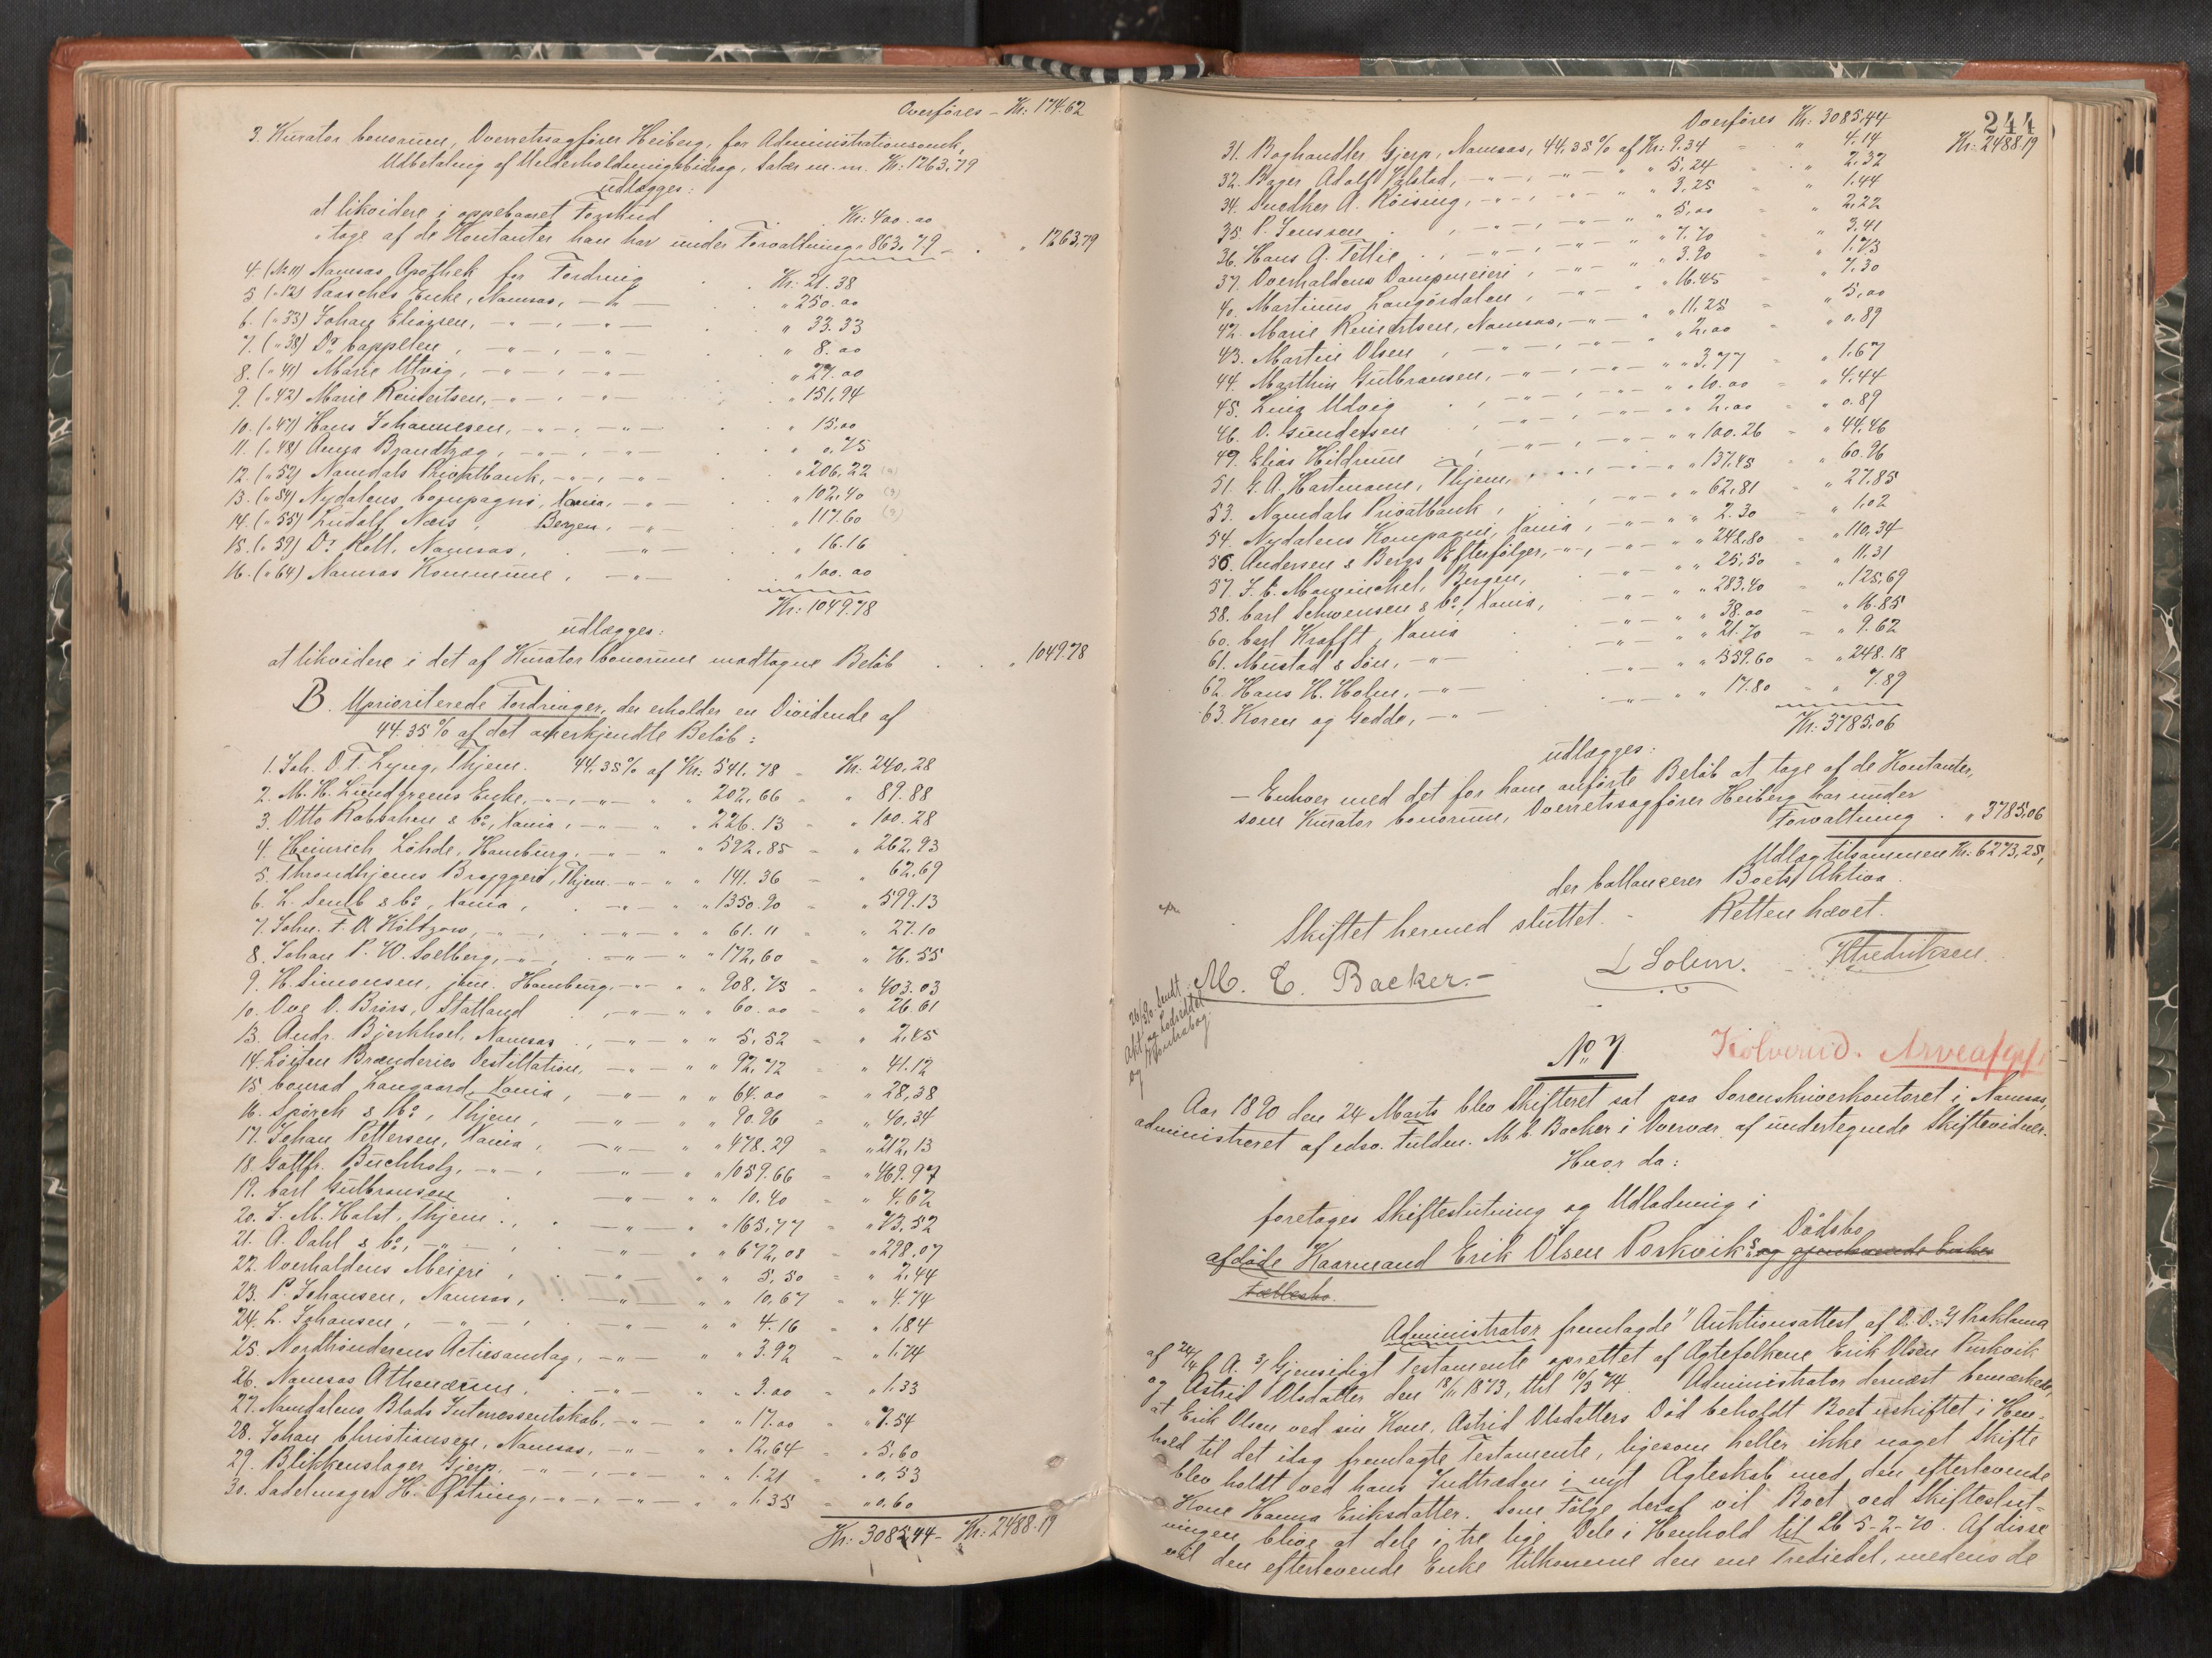 Overføres - Kr: 174.62
3. Kurator bonorum, Overretssagfører Heiberg, for Administrationsomk.,
Udbetaling af Underholdningsbidrag, Salær m.m. Kr: 1263,79
udlægges:
at likvidere i oppebaaret Forskud . . Kr: 400.00
" tage af de Kontanter han har under Forvaltning " 863,79 - . " 1263,79
4. (No 11) Namsos Apothek for Fordring . . Kr: 21.38
5 (" 12) Paasches Enke, Namsos, - " - " 250.00
6. (" 33) Johan Eliassen, - " - , - " - . " 33.33
7. (" 38) Dr Cappelen, - " - , - " - . " 8.00
8. (" 41) Marie Utvig, - " - , - " - . " 27.00
9. (" 42) Marie Reinertsen, - " - , - " - . " 151,94
10. (" 47) Hans Johannesen, - " - , - " - . " 15,00
11. (" 48) Anna Brandtzæg, - " - , - " - . " 0,75
12. (" 52) Namdals Privatbank, - " - , - " - . " 206,22
13. (" 54) Nydalens Compagni, Xania, - " - . " 102,40
14. (" 55) Ludolf Næs, Bergen, - " - . " 117.60
15. (" 59) Dr Koll, Namsos, . - " - . " 16.16
16. (" 64) Namsos Kommune, - " - . " 100.00
Kr: 1049.78
udlægges:
at likvidere i det af Kurator bonorum modtagne Beløb . . " 1049.78
B. Uprioriterede Fordringer, der erholder en Dividende af
44.35 % af det anerkjendte Beløb:
1. Joh. O. F. Lyng, Thjem. 44,35% af Kr: 541.78 = Kr: 240,28
2. M. H. Lundgreens Enke, - " - , - " - " " 202,66 = " 89.88
3. Otto Robbahn & Co, Xania, - " - " " 226.13 = " 100.28
4. Heinrich Löhde, Hamburg, - " - " " 592,85 = " 262,93
5. Throndhjems Bryggeri, Thjem - " - " " 141.36 = " 62,69
6. L. Senlb & Co, Xania, . - " - " " 1350.90 = " 599.13
7. Johs. F. A. Holtzow, - " - , . - " - " " 61.11 = " 27.10
8. Johan P. W. Soelberg, - " - , . - " - " " 172,60 = " 76.55
9. H. Simonsen, jun. Hamburg, - " - " " 908,75 = " 403.03
10. Ove O. Brørs, Statland . , - " - " " 60.00 = " 26.61
13. Andr. Bjerkhoel, Namsos . , - " - " " 5,52 = " 2,45
14. Løiten Brænderies Destillation, - " - " " 92,72 = " 41.12
15. Conrad Langaard, Xania, - " - " " 64.00 = " 28,38
16. Spörck & Co, Thjem, - " - " " 90.96 = " 40,34
17. Johan Pettersen, Xania, - " - " " 478.29 = " 212,13
18. Gottfr. Buchholz, - " - , - " - " 1059.66 = " 469.97
19. Carl Gulbransen . - " - " " 10,40 = " 4,62
20. J. M. Halst, Thjem. , . - " - " " 165,77 = " 73,52
21. A. Dahl & Co, - " - , - " - " " 672,08 = " 298,07
22. Overhaldens Meieri, . - " - " " 5,50 = " 2,44
23. P. Johansen, Namsos, . - " - " " 10,67 = " 4.74
24. L. Johansen, - " - , . - " - " " 4.16 = " 1,84
25. Nordtrønderens Actiesamlag, - " - " " 3.92 = " 1,74
26. Namsos Athenæum, . - " - " " 3.00 = " 1,33
27. Namdalens Blads Interessentskab, - " - " " 17.00 = " 7.54
28. Johan Christiansen, Namsos, - " - " " 12,64 = " 5,60
29. Blikkenslager Gjerp, - " - , - " - " " 1.21 = " 0,53
30. Sadelmager H. Øfstring, - " - , - " - " " 1.35 = " 0,60
Kr: 3085,44 - Kr: 2488.19
244
Overføres Kr: 3085,44 Kr: 2488.19
31. Boghandler Gjerp, Namsos, 44,35% af Kr: 9.34 = " 4,14
32. Bager Adolf Jelstad, - " - , - " - " " 5,24 = " 2,32
34. Snedker A. Röising, - " - , - " - " " 3,25 = " 1,44
35. P. Jenssen . , - " - , - " - " " 5,00 = " 2,22
36. Hans A. Tetlie . , - " - , - " - " " 7.70 = " 3,41
37. Overhaldens Dampmeieri, - " - " " 3.90 = " 1,73
40. Martinus Langørdalen, - " - " " 16.45 = " 7,30
42. Marie Reinertsen, Namsos, - " - " " 11.25 = " 5,00
43. Martin Olsen, - " - , - " - " " 2.00 = " 0.89
44. Marthin Gulbransen, - " - , - " - " " 3,77 = " 1,67
45. Lina Udvig . , - " - , - " - " " 10.00 = " 4,44
46. O. Gundersen . , - " - , - " - " " 2.00 = " 0.89
49. Elias Hildrum . , - " - , - " - " " 100.26 = " 44,46
51. G. A. Hartmann, Thjem, . - " - " " 137,45 = " 60.96
53. Namdals Privatbank, . , - " - " " 62,81 = " 27,85
54. Nydalens Kompagni, Xania, - " - " " 2.30 = " 1,02
56. Andersen & Bergs Efterfølger, - " - , - " - " " 248,80 = " 110,34
57. J. E. Mowinckel, Bergen, . - " - " " 25,50 = " 11.31
58. Carl Schwensen & Co, Xania, - " - " " 283,40 = " 125,69
60. Carl Krafft, Xania . - " - " " 38.00 = " 16.85
61. Mustad & Søn, - " - . - " - " " 21.70 = " 9.62
62. Hans H. Holm, - " - . - " - " " 559.60 = " 248.18
63. Koren og Gedde, - " - . - " - " " 17.80 = " 7.89
Kr: 3785.06
udlægges:
- Enhver med det for ham anførte Beløb at tage af de Kontanter,
som Kurator bonorum, Overretssagfører Heiberg har under
Forvaltning . " 3785,06
Udlæg tilsammen Kr: 6273,25,
der ballancerer Boets Aktiva.
Skiftet hermed sluttet. - Retten hævet.
M. C. Backer. - L Solem. HFredriksen
26/3 90 Sendt
Akt og Lodseddel
og Protokol
No 7 Kolverid. Arveafgift
Aar 1890 den 24 Marts blev Skifteret sat paa Sorenskriverkontoret i Namsos,
administreret af edsv. Fuldm. M. C. Backer i Overvær af undertegnede Skiftevidner.
Hvor da:
foretoges Skifteslutning og Udlodning i
Dödsbo
afdöde Kaarmand Erik Olsen Porkviks og gjenlevende Enkes
Fællesbo.
Administrator fremlagde 1) Auktionsattest af D. D. 2) Proklama
af 24/4 f. A. 3) Gjensidigt Testamente oprettet af Ægtefolkene Erik Olsen Purkvik
og Astrid Olsdatter den 18/11 1873, thl 10/3 74. Administrator dernæst bemærkede,
at Erik Olsen ved sin Kone, Astrid Olsdatters Død beholdt Boet uskiftet i Hen-
hold til det idag fremlagte Testamente, ligesom heller ikke noget Skifte
blev holdt ved hans Indtræden i nyt Ægteskab med den efterlevende
Kone Hanna Eriksdatter. Som Følge deraf vil Boet ved Skifteslut-
ningen blive at dele i tre lige Dele i Henhold til Lb 5-2-70. Af disse
vil den efterlevende Enke tilkomme den ene Trediedel, medens de